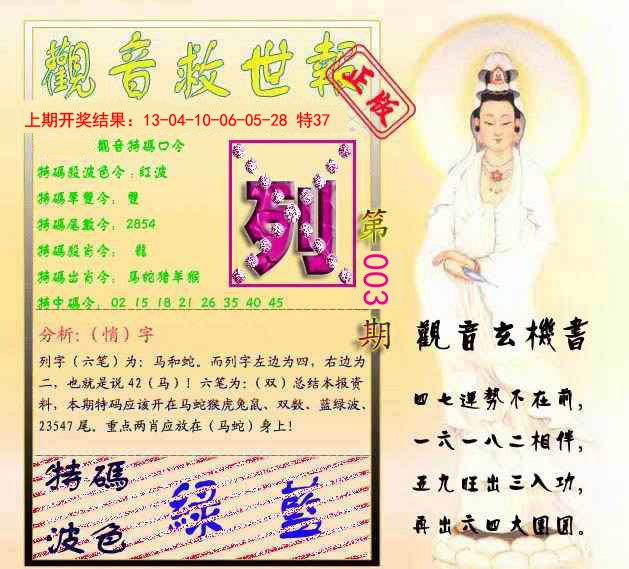 觀音救世報
正版
上期开奖结果：13-04-10-06-05-28 特37
觀音特碼口令
特碼殺波色令：紅波
特碼單雙令： 雙
特碼尾數令：2854
特碼殺肖令： 龍
特碼出肖令：馬蛇猪羊猴
特中碼令：02 15 18 21 26 35 40 45
列
第003期
分析：（悄）字
列字（六笔）为：马和蛇。而列字左边为四，右边为
二，也就是说 42（马）！六笔为：（双）总结本报资
料，本期特码应该开在马蛇猴虎兔鼠、双数、蓝绿波、
23547 尾。重点两肖应放在（马蛇）身上！
特碼
波色
綠 藍
觀音玄機書
四七運勢不在前，
一六一八二相伴，
五九旺出三入功，
再出六四大團圓。